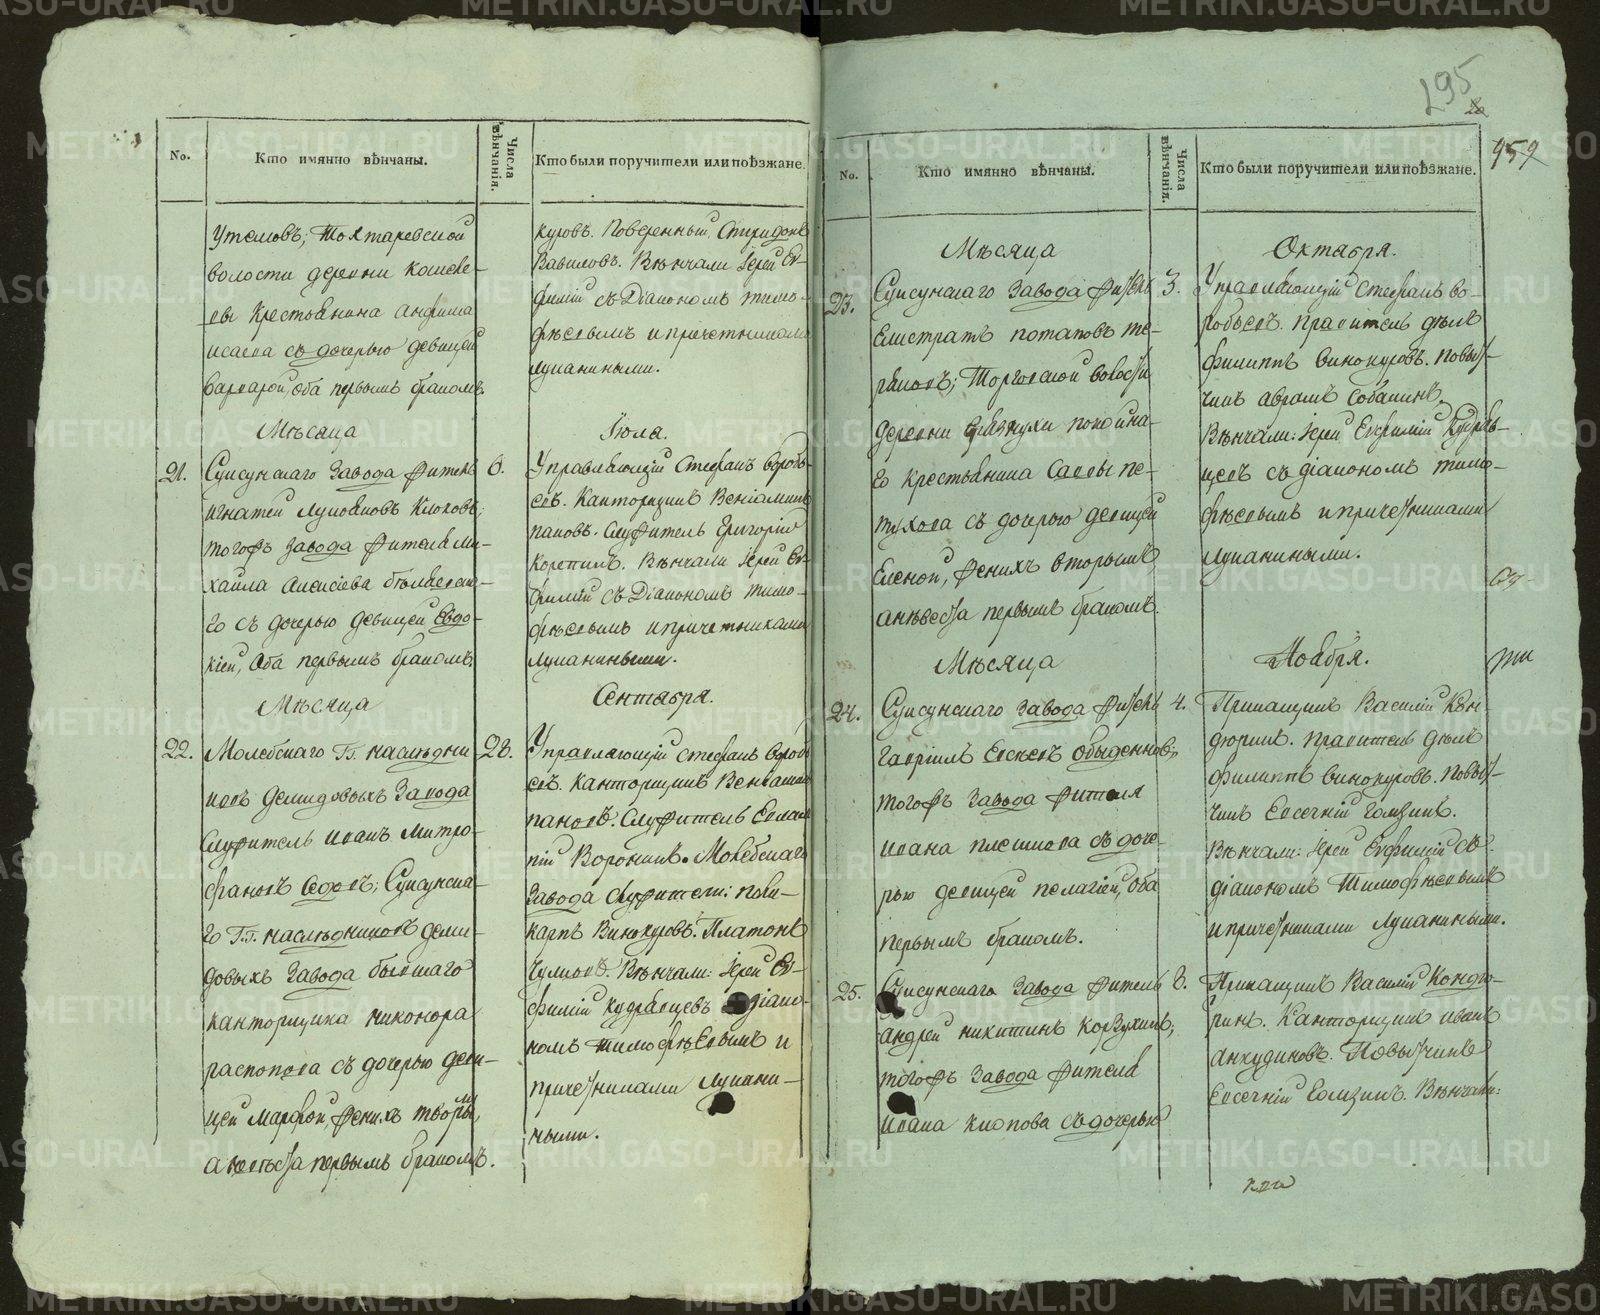 195
959
No.
Кто имянно вѣнчаны.
Числа вѣнчанія.
Кто были поручители или поѣзжане.
Утемовъ, Тохтаревской
волости деревни
Крестьянина
Исаева съ дочерью девицей
Варварой, оба первымъ бракомъ.
куровъ. Поверенный Спиридонъ
Вавиловъ. Вѣнчали Іерей Ев-
фимій съ Діакономъ Тимо-
фѣевымъ и причетниками
Луканиными.
Мѣсяца
Іюля.
21.
Суксунскаго Завода житель
Игнатей Клюковъ,
тогожъ Завода жителя Ми-
хайла Алексіева
го съ дочерью девицей Евдо-
кіей, оба первымъ бракомъ.
6.
Управляющій Стефанъ Воробь-
евъ. Канторщикъ Веніаминъ
Пановъ. Служитель Григорій
Корепинъ. Вѣнчали Іерей Ев-
фимій съ Діакономъ Тимо-
фѣевымъ и причетниками
Луканиными.
Мѣсяца
Сентября.
22.
Молебскаго Гг. наслѣдни-
ковъ Демидовыхъ Завода
Служитель Иванъ Митро-
фановъ Седовъ; Суксунска-
го Г.г. наслѣдниковъ Деми-
довыхъ Завода бывшаго
канторщика Никонора
Распопова съ дочерью деви-
цей Марфой, женихъ
а невѣста первымъ бракомъ.
28.
Управляющій Стефанъ Воробь-
евъ. Канторщикъ Веніаминъ
Пановъ. Служитель Евлам-
пій Воронинъ. Молебскаго
Завода служители: Поли-
карпъ Винокуровъ. Платонъ
Чулковъ. Вѣнчали: Іерей Ев-
фимій Кудрявцевъ діако-
номъ Тимофѣевымъ и
причетниками Лукани-
ными.
No.
Кто имянно вѣнчаны.
Числа вѣнчанія.
Кто были поручители или поѣзжане.
Мѣсяца
Октября.
23.
Суксунскаго Завода житель
Елистратъ Потаповъ
Торговской волости
деревни покойна-
го крестьянина Саввы Пе-
тухова съ дочерью девицей
Еленой, женихъ вторымъ,
а невѣста первымъ бракомъ.
3.
Управляющій Стефанъ Во-
робьевъ. Правитель дѣлъ
Филиппъ Винокуровъ. Повыт-
чикъ Аврамъ Собакинъ.
Вѣнчали: Іерей Евфимій Кудряв-
цевъ съ діакономъ Тимо-
фѣевымъ и причетниками
Луканиными.
Мѣсяца
Ноября.
24.
Суксунскаго Завода житель
Гавріилъ Евсѣевъ Обыденновъ,
тогожъ Завода жителя
Ивана Плешкова съ доче-
рью девицей Пелагіей, оба
первымъ бракомъ.
4.
Прикащикъ Василій Кон-
дюринъ. Правитель дѣлъ
Филиппъ Винокуровъ. Повыт-
чикъ Евсегній Голзинъ.
Вѣнчали: Іерей Евфимій съ
діакономъ Тимофѣевымъ
и причетниками Луканиными.
25.
Суксунскаго Завода житель
Андрей Никитинъ Корзухинъ,
тогожъ Завода жителя
Ивана Клюпова съ дочерью
8.
Прикащикъ Василій Кондю-
ринъ. Канторщикъ Иванъ
Анкудиновъ. Повытчикъ
Евсегній Голзинъ. Вѣнчали: